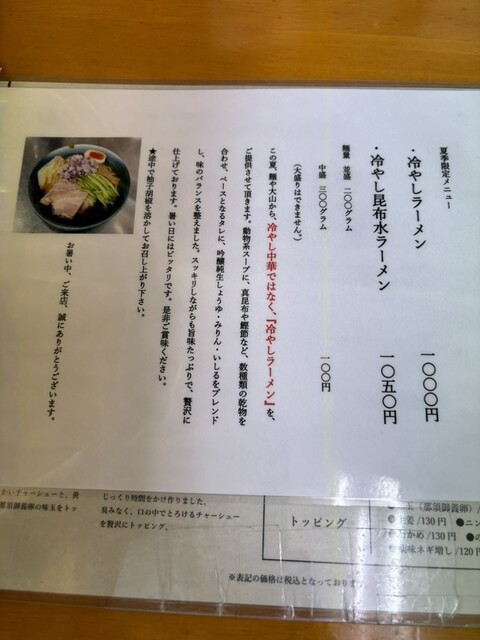 夏季限定メニュー
・冷やしラーメン　一〇〇〇円
・冷やし昆布水ラーメン　一〇五〇円
麺量　並盛　二〇〇グラム
中盛　三〇〇グラム　一〇〇円
（大盛りはできません。）
この夏、麺や大山から、冷やし中華ではなく、『冷やしラーメン』を、
ご提供させて頂きます。動物系スープに、真昆布や鰹節など、数種類の乾物を
合わせ、ベースとなるタレに、吟醸純生しょうゆ・みりん・いしるをブレンド
し、味のバランスを整えました。スッキリしながらも旨味たっぷりで、贅沢に
仕上げております。暑い日にはピッタリです。是非ご賞味ください。
★途中で柚子胡椒を溶かしてお召し上がり下さい。
お暑い中、ご来店、誠にありがとうございます。
かいチャーシューと、黄
那須御養卵の味玉をトッ
じっくり時間をかけ作りました。
臭みなく、口の中でとろけるチャーシュー
を贅沢にトッピング。
トッピング
（那須御養卵）/
生姜/130円　●ニン
わかめ/130円　●の
薬味ネギ増し/120円
※表記の価格は税込となっております